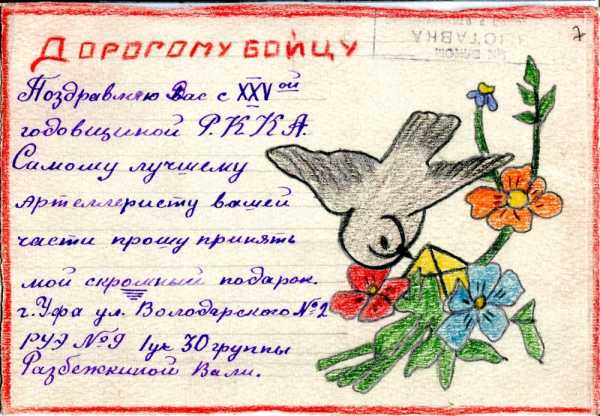 7
ДОРОГОМУ БОЙЦУ
Поздравляю Вас с XXVой
годовщиной Р.К.К.А.
Самому лучшему
артеллеристу вашей
части прошу принять
мой скромный подарок.
г. Уфа ул. Володарского №2
РУЭ №9 30 группы
Разбежкиной Вали.